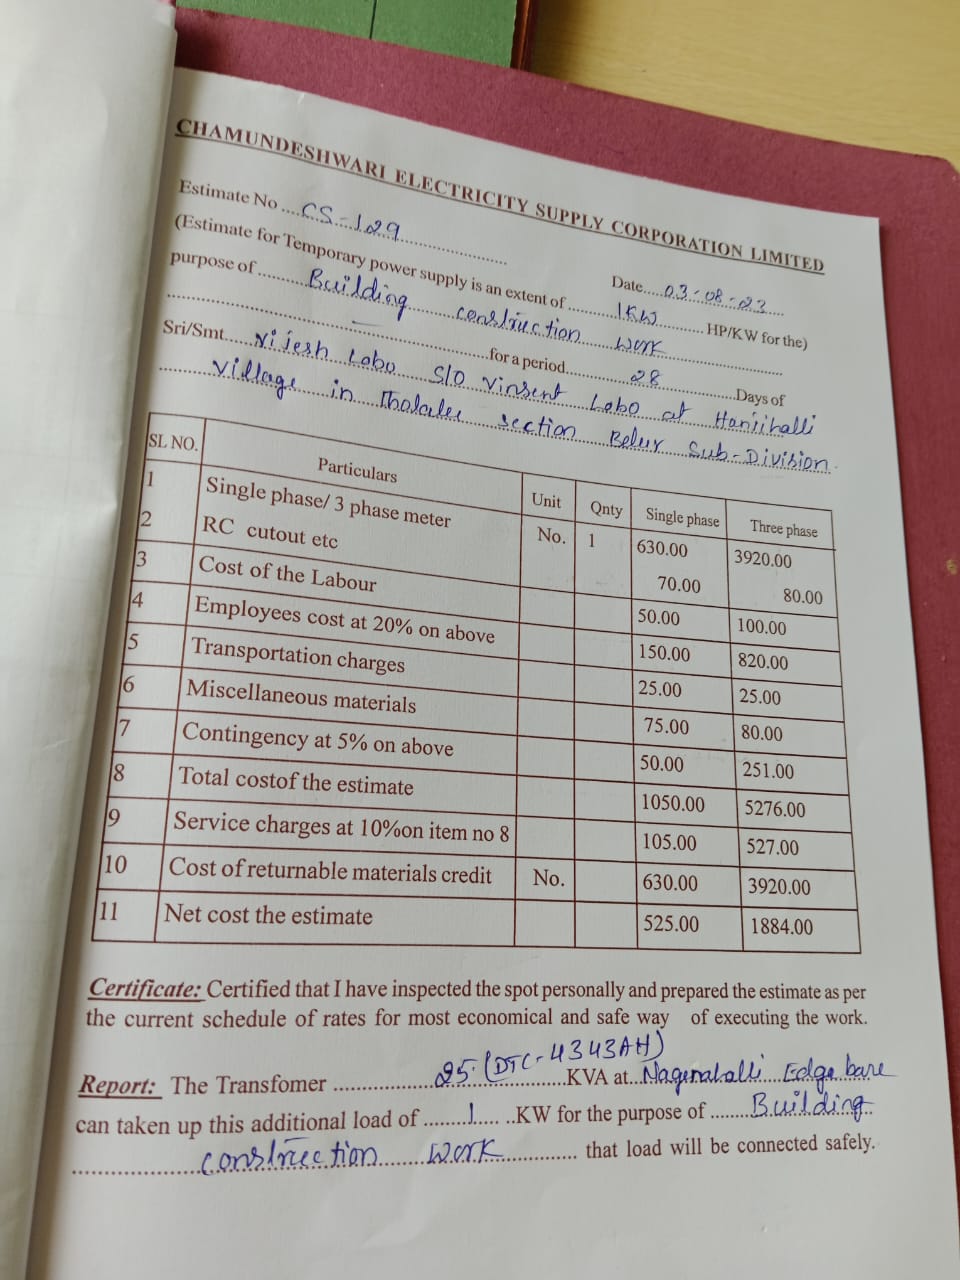 CHAMUNDESHWARI ELECTRICITY SUPPLY CORPORATION LIMITED
Estimate No ....CS-129
Date....03-08-23
(Estimate for Temporary power supply is an extent of 1KW HP/KW for the)
purpose of Building construction work
for a period 28 Days of
Sri/Smt. Vijesh Lobo S/o Vinsent Lobo at Hanjihalli
Village in Thalalu section Belur Sub-Division.
SL NO. Particulars Unit Qnty Single phase Three phase
1 Single phase/ 3 phase meter No. 1 630.00 3920.00
2 RC cutout etc 70.00 80.00
3 Cost of the Labour 50.00 100.00
4 Employees cost at 20% on above 150.00 820.00
5 Transportation charges 25.00 25.00
6 Miscellaneous materials 75.00 80.00
7 Contingency at 5% on above 50.00 251.00
8 Total costof the estimate 1050.00 5276.00
9 Service charges at 10%on item no 8 105.00 527.00
10 Cost of returnable materials credit No. 630.00 3920.00
11 Net cost the estimate 525.00 1884.00
Certificate: Certified that I have inspected the spot personally and prepared the estimate as per
the current schedule of rates for most economical and safe way of executing the work.
Report: The Transfomer 25 (DTC-4343AH) KVA at Nagenahalli Edge bare
can taken up this additional load of 1 KW for the purpose of Building
construction work that load will be connected safely.